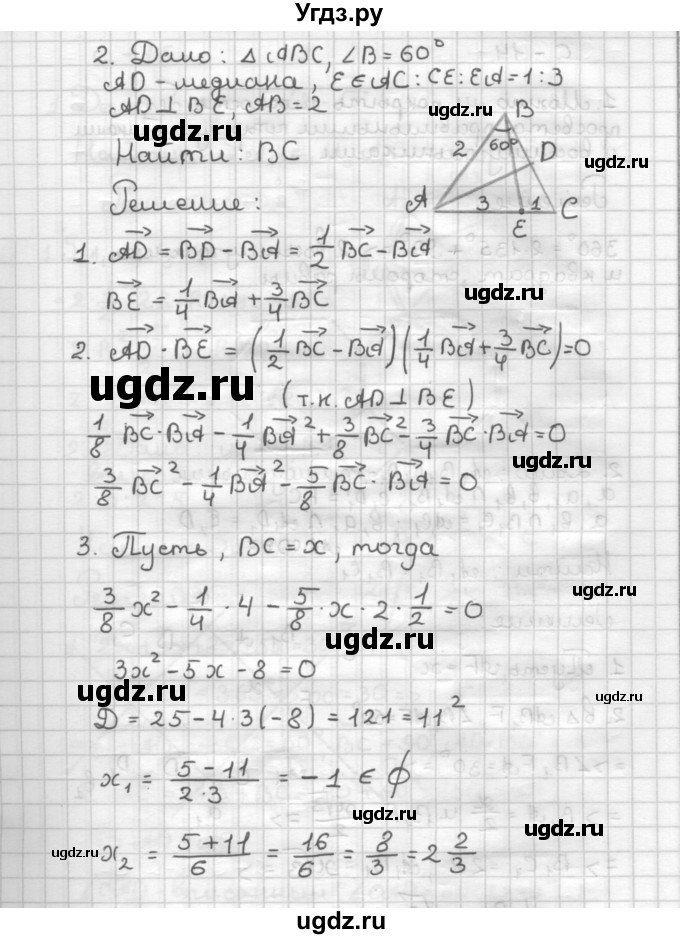 Угдз.ру
2. Дано: △ABC, ∠B = 60°
AD - медиана, E ∈ AC : CE : EA = 1 : 3
AD ⊥ BE, AB = 2
ugdz.ru
ugdz.ru
Найти: BC
ugdz.ru
B
2
60°
D
A
3
1
C
E
Решение:
1. AD⃗ = BD⃗ - BA⃗ = 1/2 BC⃗ - BA⃗
BE⃗ = 1/4 BA⃗ + 3/4 BC⃗
ugdz.ru
2. AD⃗ · BE⃗ = (1/2 BC⃗ - BA⃗)(1/4 BA⃗ + 3/4 BC⃗) = 0
ugdz.ru
(т.к. AD ⊥ BE)
1/8 BC⃗ · BA⃗ - 1/4 BA⃗² + 3/8 BC⃗² - 3/4 BC⃗ · BA⃗ = 0
ugdz.ru
3/8 BC⃗² - 1/4 BA⃗² - 5/8 BC⃗ · BA⃗ = 0
3. Пусть, BC = x, тогда
ugdz.ru
3/8 x² - 1/4 · 4 - 5/8 · x · 2 · 1/2 = 0
ugdz.ru
3x² - 5x - 8 = 0
ugdz.ru
ugdz.ru
D = 25 - 4 · 3(-8) = 121 = 11²
x₁ = (5 - 11)/(2·3) = -1 ∈ ∅
ugdz.ru
ugdz.ru
ugdz.ru
x₂ = (5 + 11)/6 = 16/6 = 8/3 = 2 2/3
ugdz.ru